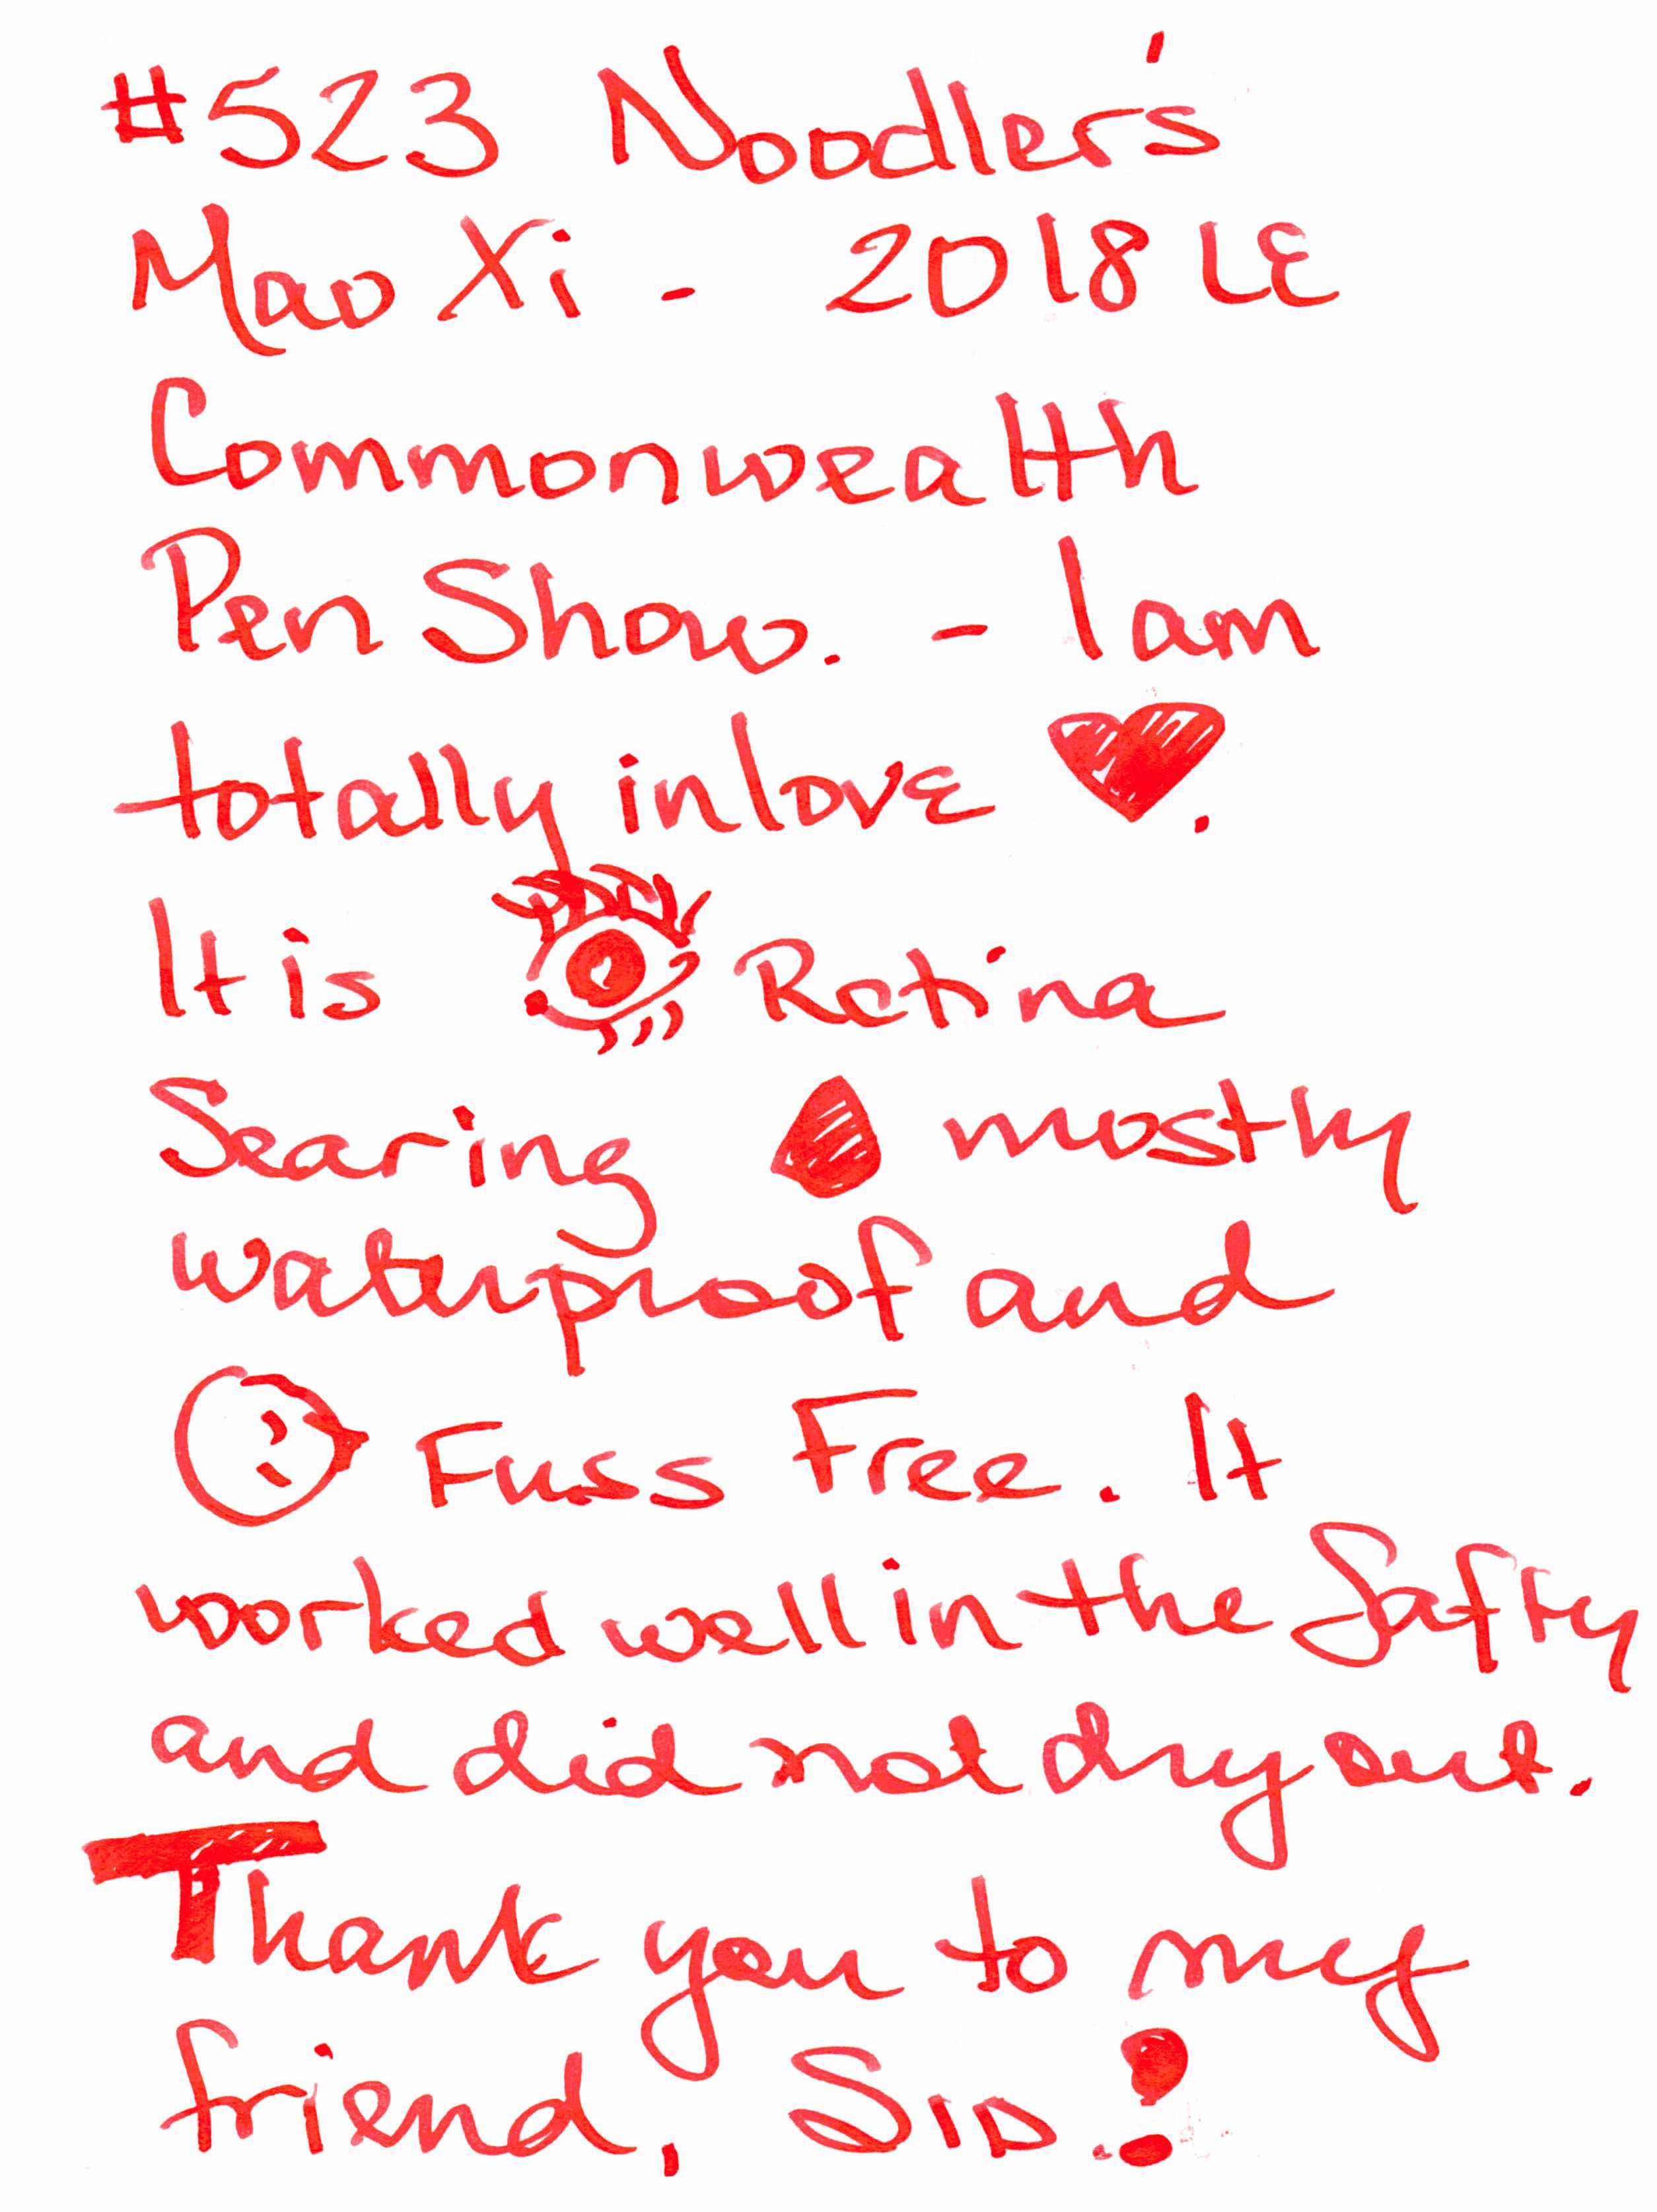 #523 Noodler's
Mao Xi - 2018 LE
Commonwealth
Pen Show. - I am
totally in love ♥.
It is Retina
Searing mostly
waterproof and
Fuss Free. It
worked well in the Safty
and did not dry out.
Thank you to my
friend, SID.!